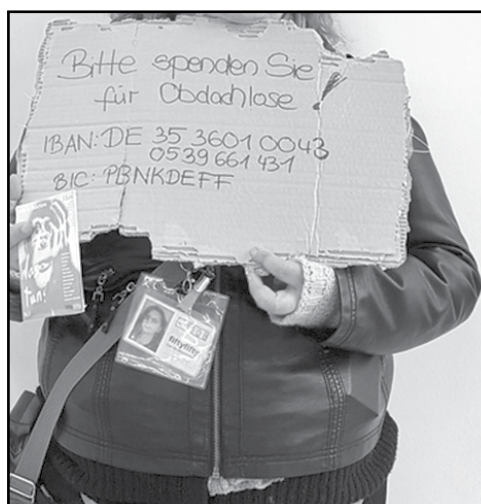 Bitte spenden Sie
für Obdachlose!
IBAN: DE 35 3601 0043
0539 661 431
BIC: PBNKDEFF
tun!
fiftyfifty